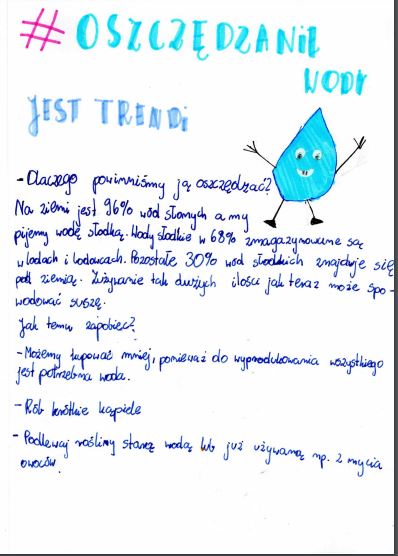 # OSZCZĘDZANIE
WODY
JEST TRENDi
- Dlaczego powinniśmy ją oszczędzać?
Na ziemi jest 96% wód słonych a my
pijemy wodę słodką. Wody słodkie w 68% zmagazynowane są
w lodach i lodowcach. Pozostałe 30% wód słodkich znajduje się
pod ziemią. Zużywanie tak dużych ilości jak teraz może spo-
wodować suszę.
Jak temu zapobiec?
- Możemy kupować mniej, ponieważ do wyprodukowania wszystkiego
jest potrzebna woda.
- Rób krótkie kąpiele
- Podlewaj rośliny starą wodą lub już używaną np. z mycia
owoców.